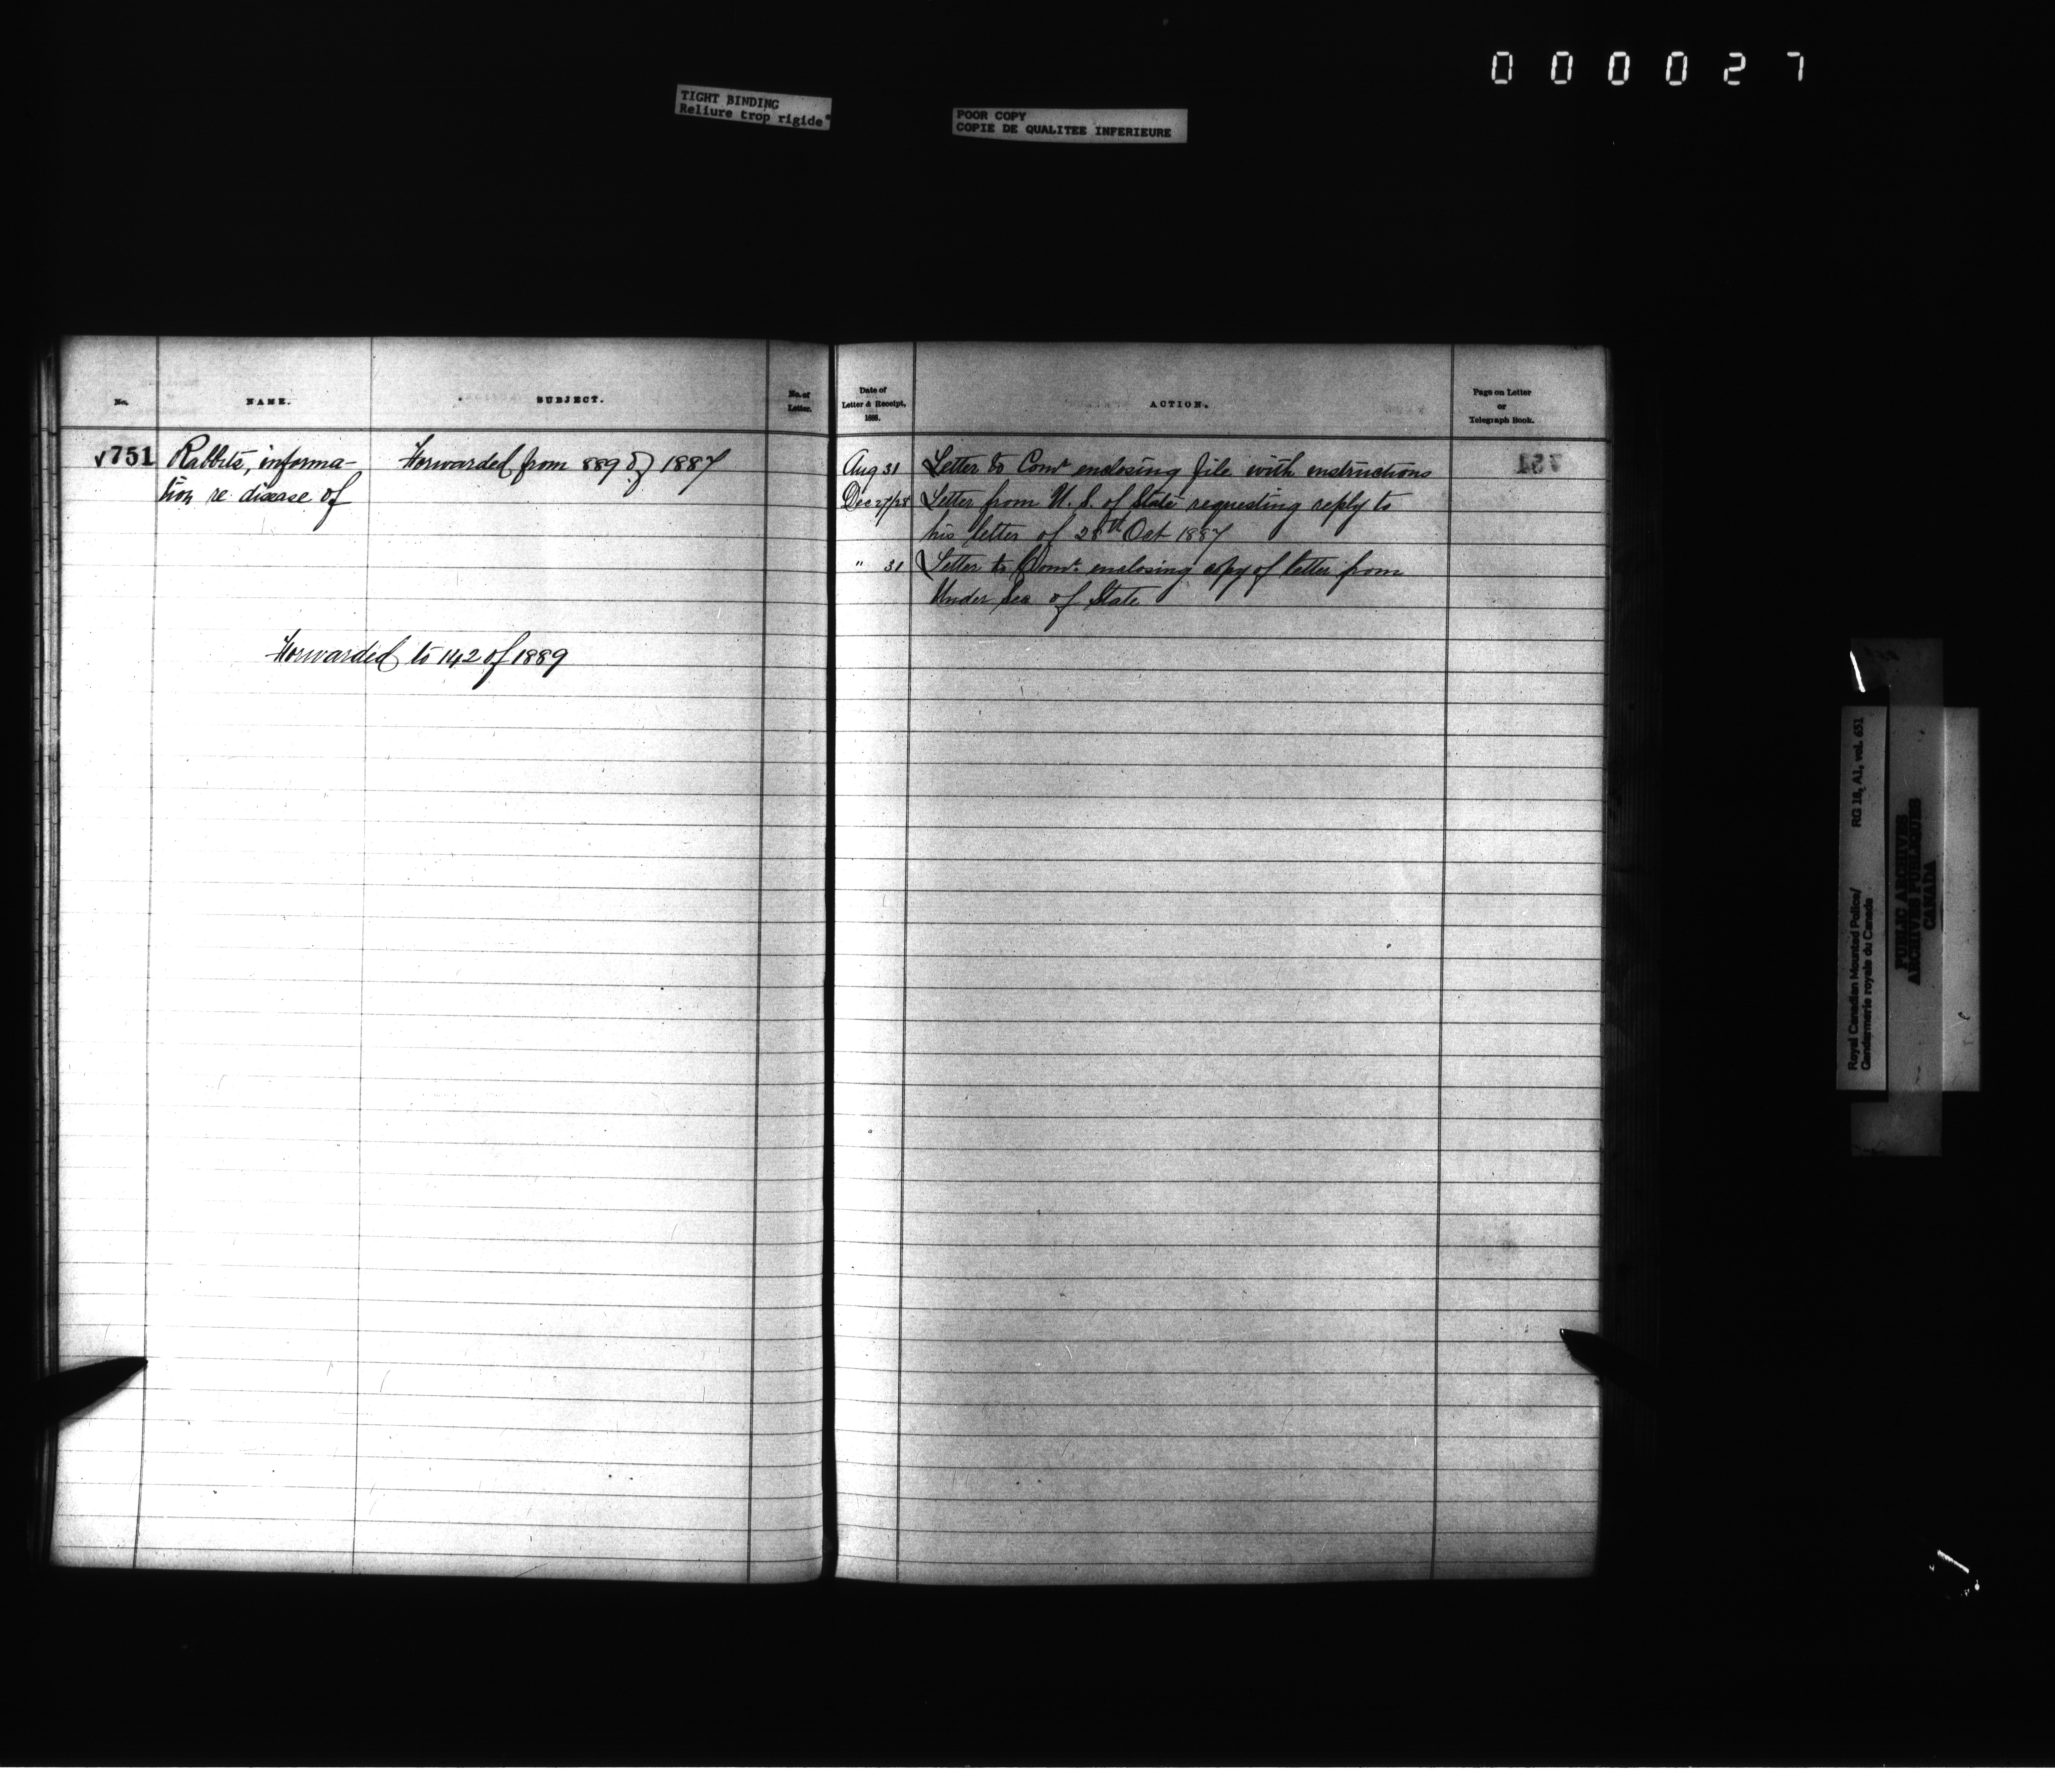 000027
TIGHT BINDING
Reliure trop rigide
POOR COPY
COPIE DE QUALITEE INFERIEURE
No.
NAME.
SUBJECT.
No. of
Letter.
√751
Rabbits, informa-
tion re disease of
Forwarded from 889 of 1887
Forwarded to 142 of 1889
Date of
Letter & Receipt,
1888.
ACTION.
Page on Letter
or
Telegraph Book.
Aug 31 Letter to Comr enclosing file with instructions
Dec 27/28 Letter from U. S. of State requesting reply to
his letter of 28th Oct 1887
" 31 Letter to Comr. enclosing copy of letter from
Under Sec of State
751
Royal Canadian Mounted Police/
Gendarmerie royale du Canada
RG 18, A1, vol. 651
PUBLIC ARCHIVES
ARCHIVES PUBLIQUES
CANADA